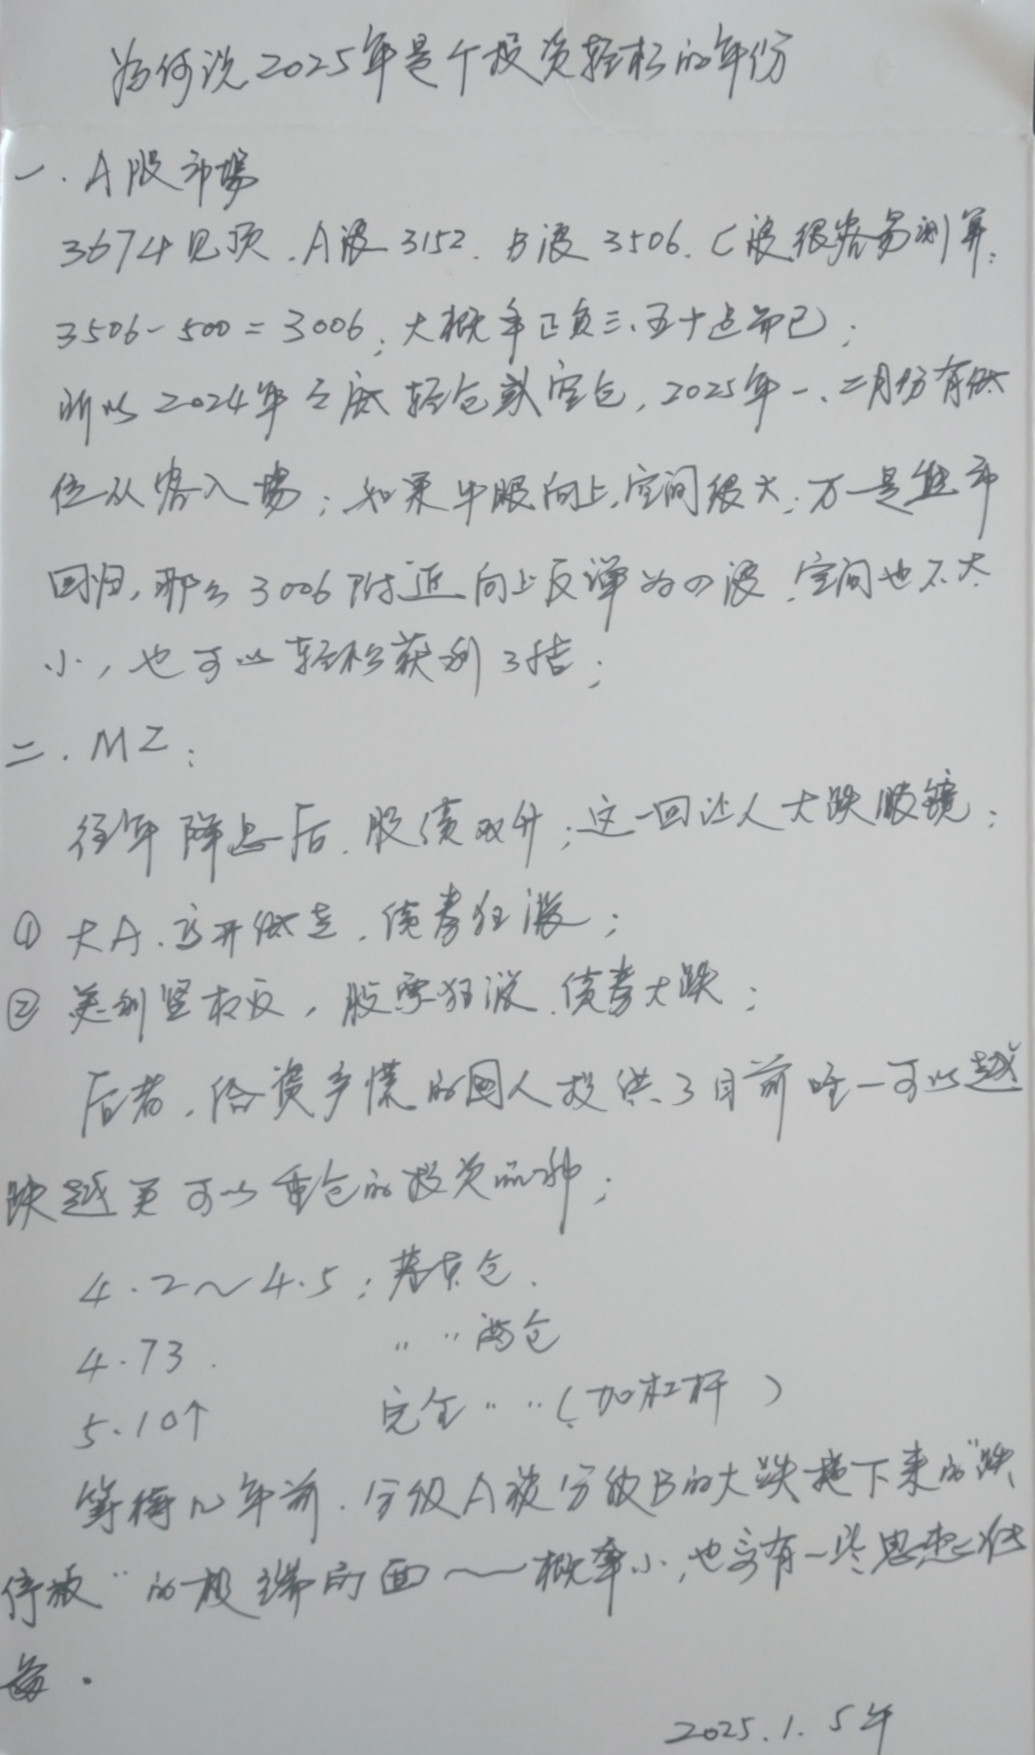 为何说2025年是个投资轻松的年份
一. A股市场
3674见顶. A浪3152. B浪3506. C浪很容易测算:
3506-500=3006; 大概率正负三、五十点而已;
所以2024年之底轻仓或空仓, 2025年一、二月份有低
位从容入场; 如果牛股向上, 空间很大; 万一是熊市
回归, 那么3006附近向上反弹为四浪. 空间也不太
小, 也可以轻松获利了结;
二. MZ:
往年降息后. 股债双升; 这一回让人大跌眼镜;
① 大A. 高开低走. 债券狂涨;
② 美利坚相反, 股票狂涨. 债券大跌;
后者, 给资产慌的国人提供了目前唯一可以越
跌越买可以重仓的投资品种;
4.2~4.5: 基本仓.
4.73. 〃 〃 满仓
5.10↑ 完全 〃 〃 (加杠杆)
等待几年前. 分级A被分级B的大跌拖下来的“跌
停板”的极端局面——概率小, 也要有一些思想准
备.
2025.1.5年